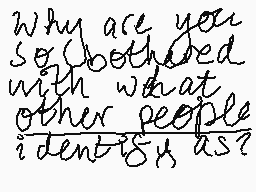 Why are you
so bothered
with what
other people
identify as?